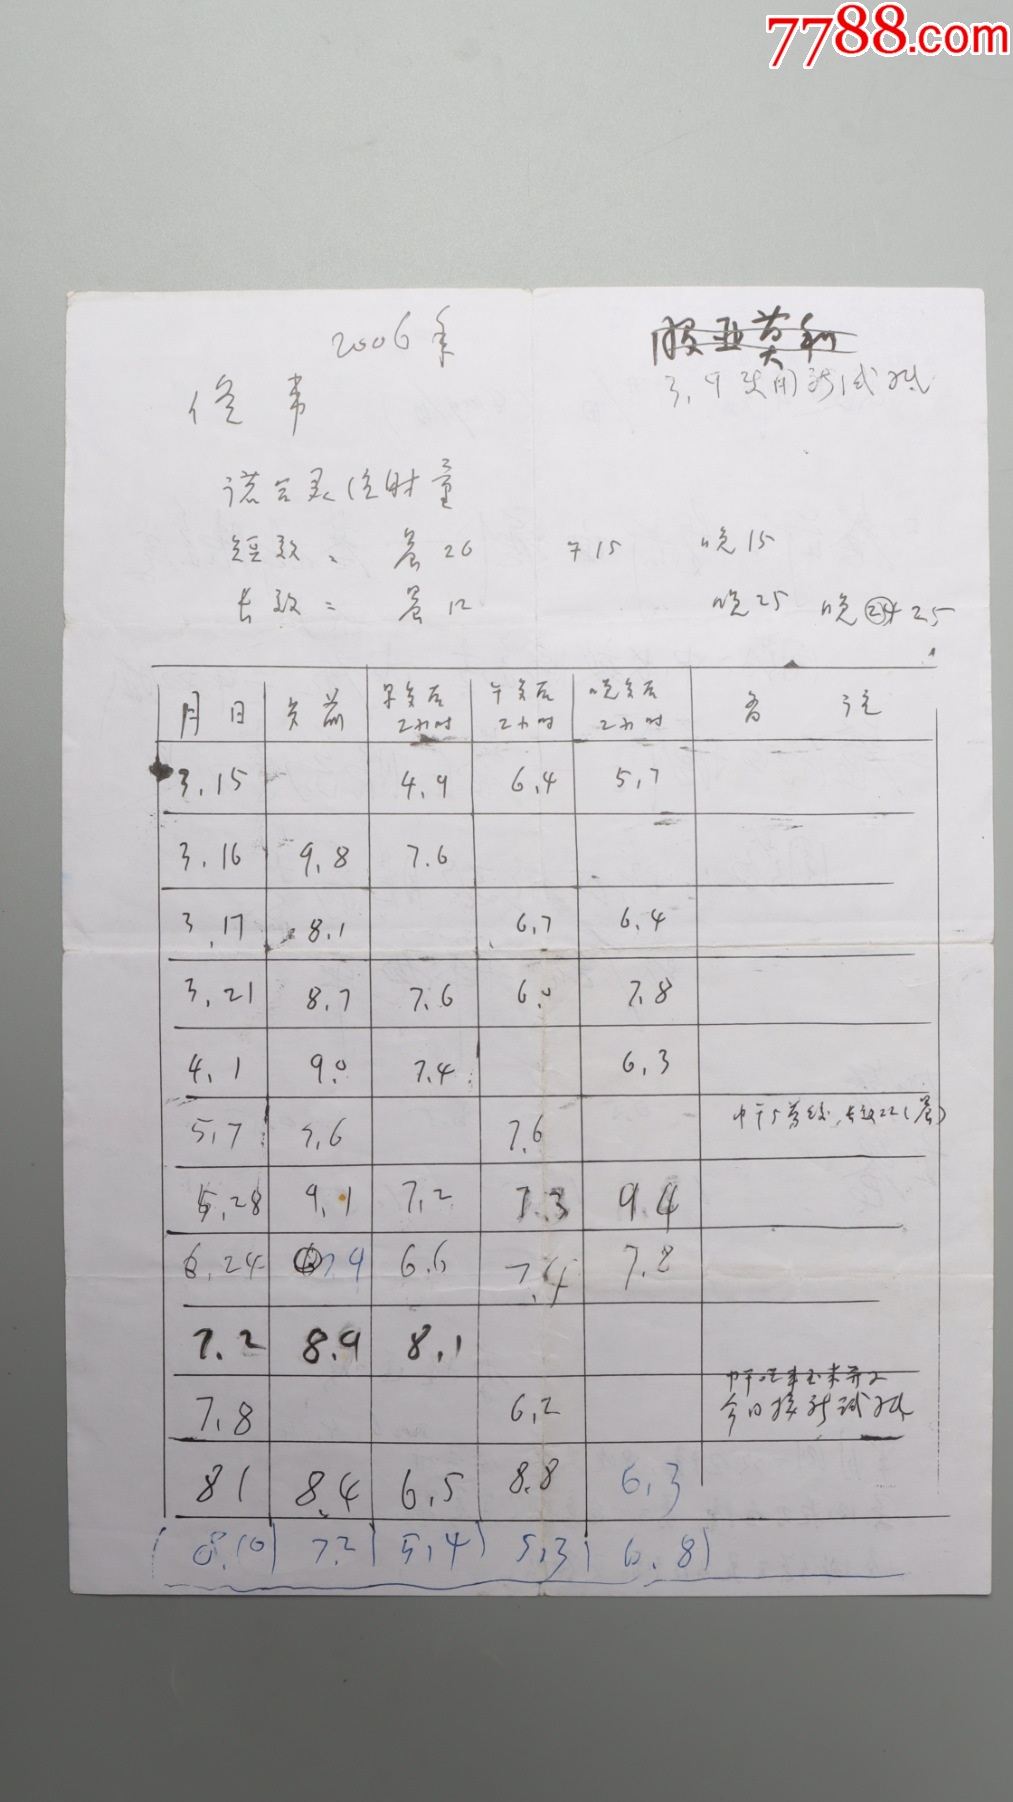 7788.com
2006年
3.9 改用新试纸
诺合灵注射量
短效: 晨20 午15 晚15
长效: 晨12 晚25 晚 25
月日 食前 早食后2小时 午食后2小时 晚食后2小时 备注
3.15 4.9 6.4 5.7
3.16 9.8 7.6
3.17 8.1 6.7 6.4
3.21 8.7 7.6 6.0 7.8
4.1 9.0 7.4 6.3
5.7 7.6 7.6 中午 长效22(晨)
5.28 9.1 7.2 7.3 9.4
6.24 7.9 6.6 7.4 7.8
7.2 8.9 8.1
7.8 6.2 今日换新试纸
8 1 8.4 6.5 8.8 6.3
8.10 7.2 5.4 5.3 6.8